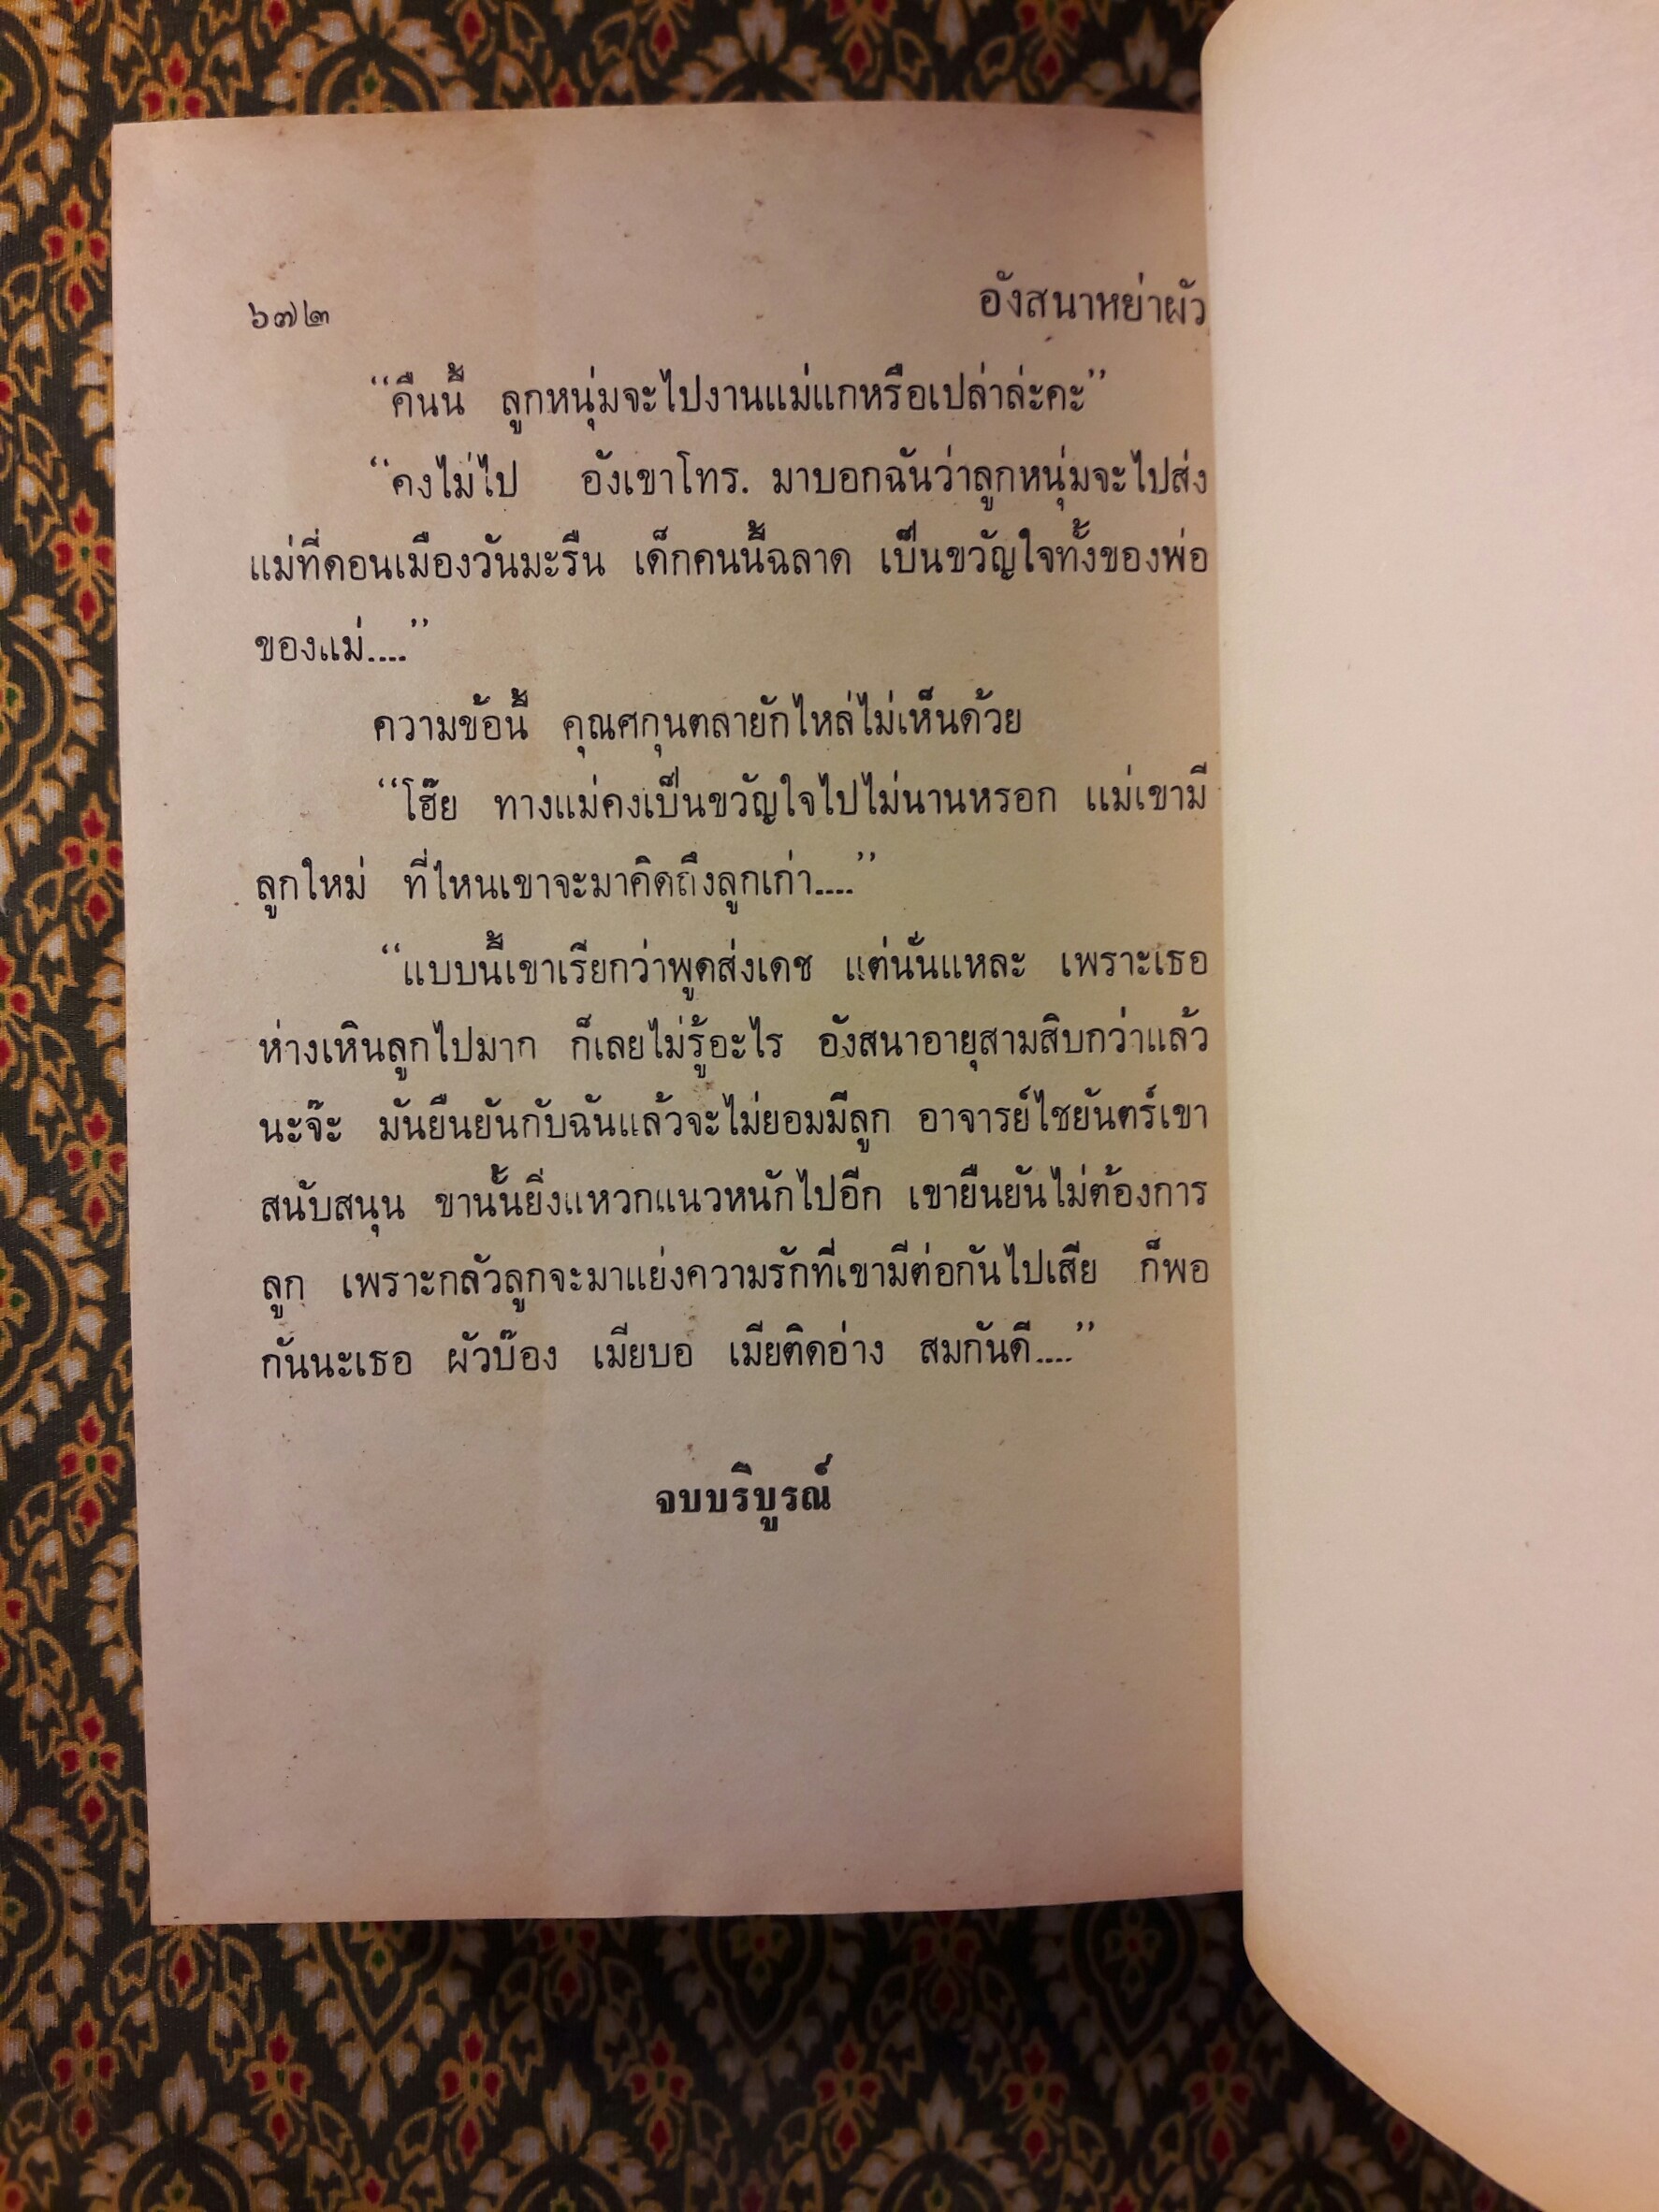 ๖๗๒ อังสนาหย่าผัว
“คืนนี้ ลูกหนุ่มจะไปงานแม่แกหรือเปล่าล่ะคะ”
“คงไม่ไป อังเขาโทร. มาบอกฉันว่าลูกหนุ่มจะไปส่ง
แม่ที่ดอนเมืองวันมะรืน เด็กคนนี้ฉลาด เป็นขวัญใจทั้งของพ่อ
ของแม่....”
ความข้อนี้ คุณศกุนตลายักไหล่ไม่เห็นด้วย
“โฮ๊ย ทางแม่คงเป็นขวัญใจไปไม่นานหรอก แม่เขามี
ลูกใหม่ ที่ไหนเขาจะมาคิดถึงลูกเก่า....”
“แบบนี้เขาเรียกว่าพูดส่งเดช แต่นั่นแหละ เพราะเธอ
ห่างเหินลูกไปมาก ก็เลยไม่รู้อะไร อังสนาอายุสามสิบกว่าแล้ว
นะจ๊ะ มันยืนยันกับฉันแล้วจะไม่ยอมมีลูก อาจารย์ไชยันตร์เขา
สนับสนุน ขานั้นยิ่งแหวกแนวหนักไปอีก เขายืนยันไม่ต้องการ
ลูก เพราะกลัวลูกจะมาแย่งความรักที่เขามีต่อกันไปเสีย ก็พอ
กันนะเธอ ผัวบ๊อง เมียบอ เมียติดอ่าง สมกันดี....”
จบบริบูรณ์